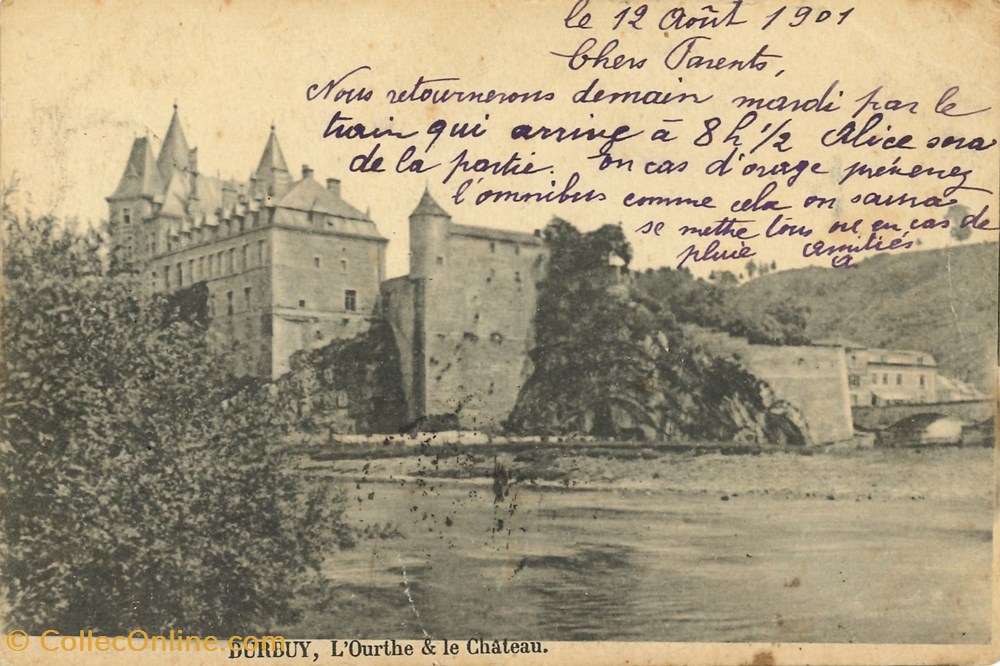 le 12 Août 1901
Chers Parents,
Nous retournerons demain mardi par le
train qui arrive à 8h 1/2 Alice sera
de la partie. En cas d'orage prévenez
l'omnibus comme cela on saura
se mettre tous en cas de
pluie amitiés
A
DURBUY, L'Ourthe & le Château.
© CollecOnline.com